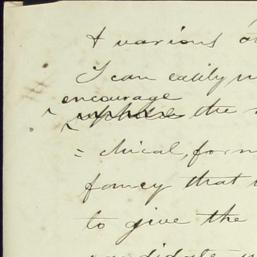 & various
I can easily
encourage
the
= chical, for
fancy that
to give the